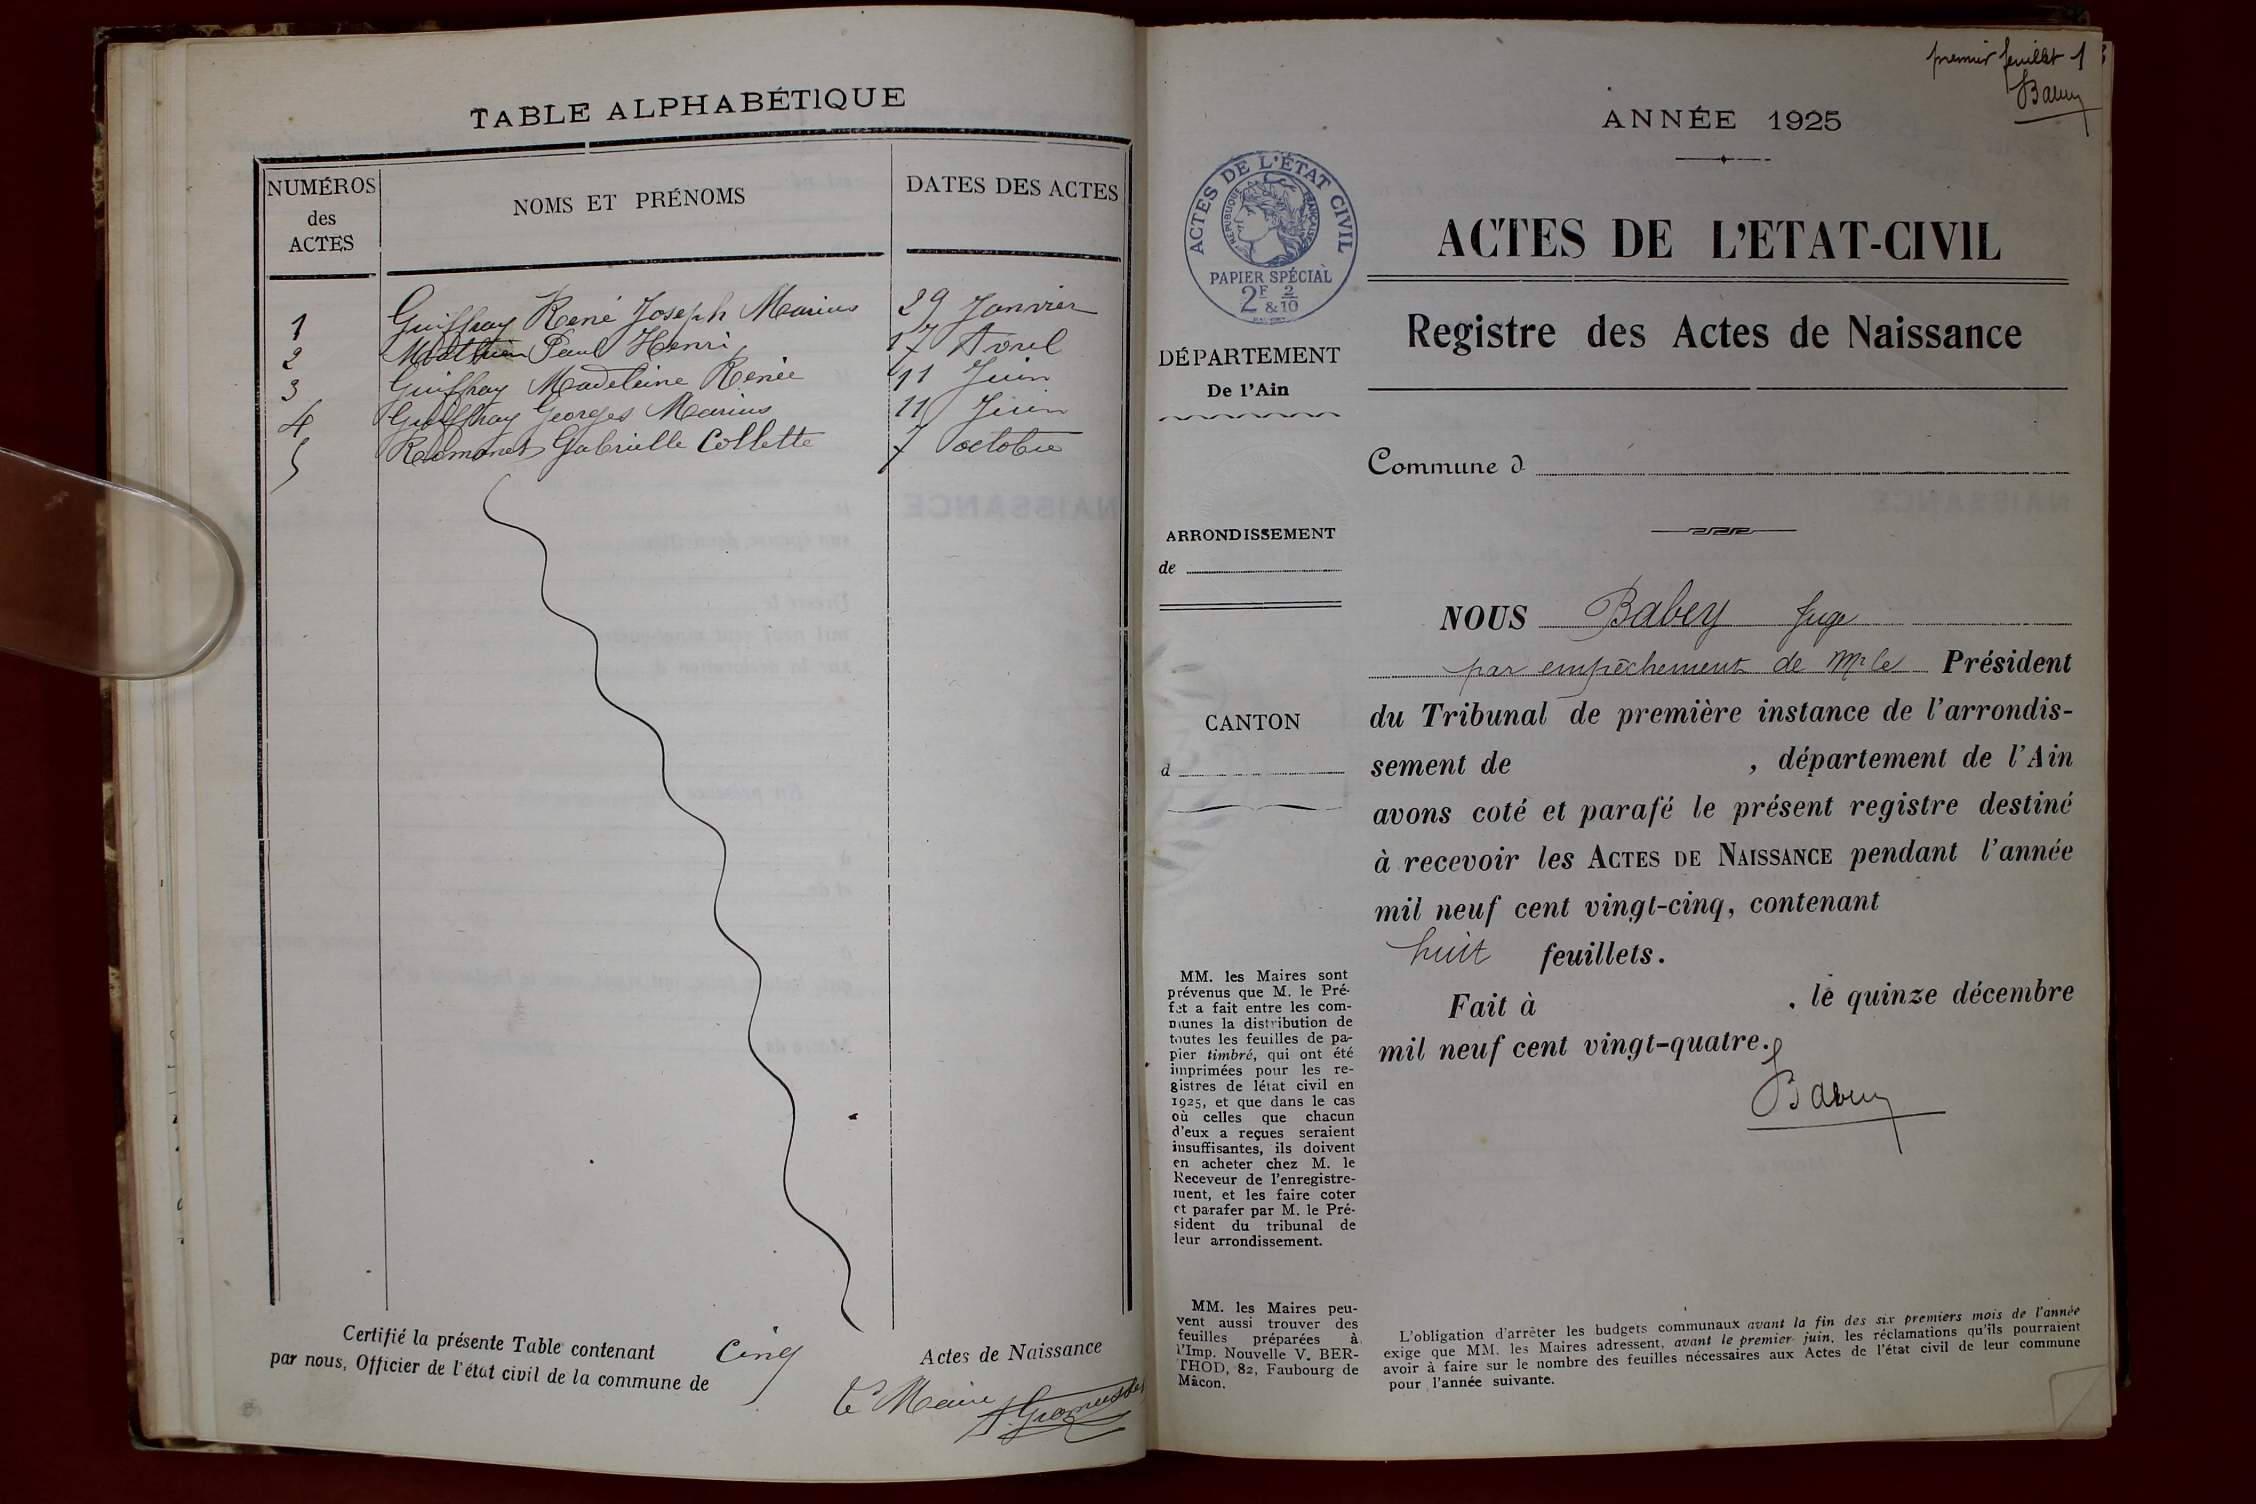 TABLE ALPHABÉTIQUE
NUMÉROS
des
ACTES
NOMS ET PRÉNOMS
DATES DES ACTES
1 Guiffray René Joseph Marius 29 Janvier
2 Mathieu Paul Henri 17 Avril
3 Guiffray Madeleine Renée 11 Juin
4 Guiffray Georges Marius 11 Juin
5 Gabrielle Collette 7 octobre
Certifié la présente Table contenant cinq Actes de Naissance
par nous, Officier de l'état civil de la commune de
Le Maire
premier feuillet 1
Babey
ANNÉE 1925
ACTES DE L'ÉTAT CIVIL
RÉPUBLIQUE FRANÇAISE
PAPIER SPÉCIAL
2F & 2/10
DÉPARTEMENT
De l'Ain
ARRONDISSEMENT
de
CANTON
d
MM. les Maires sont
prévenus que M. le Pré-
fet a fait entre les com-
munes la distribution de
toutes les feuilles de pa-
pier timbré, qui ont été
imprimées pour les re-
gistres de létat civil en
1925, et que dans le cas
où celles que chacun
d'eux a reçues seraient
insuffisantes, ils doivent
en acheter chez M. le
Receveur de l'enregistre-
ment, et les faire coter
et parafer par M. le Pré-
sident du tribunal de
leur arrondissement.
MM. les Maires peu-
vent aussi trouver des
feuilles préparées à
l'Imp. Nouvelle V. BER-
THOD, 82, Faubourg de
Mâcon.
ACTES DE L'ETAT-CIVIL
Registre des Actes de Naissance
Commune d
NOUS Babey Juge
par empêchement de Mr le Président
du Tribunal de première instance de l'arrondis-
sement de , département de l'Ain
avons coté et parafé le présent registre destiné
à recevoir les ACTES DE NAISSANCE pendant l'année
mil neuf cent vingt-cinq, contenant
huit feuillets.
Fait à , le quinze décembre
mil neuf cent vingt-quatre.
Babey
L'obligation d'arrêter les budgets communaux avant la fin des six premiers mois de l'année
exige que MM. les Maires adressent, avant le premier juin, les réclamations qu'ils pourraient
avoir à faire sur le nombre des feuilles nécessaires aux Actes de l'état civil de leur commune
pour l'année suivante.